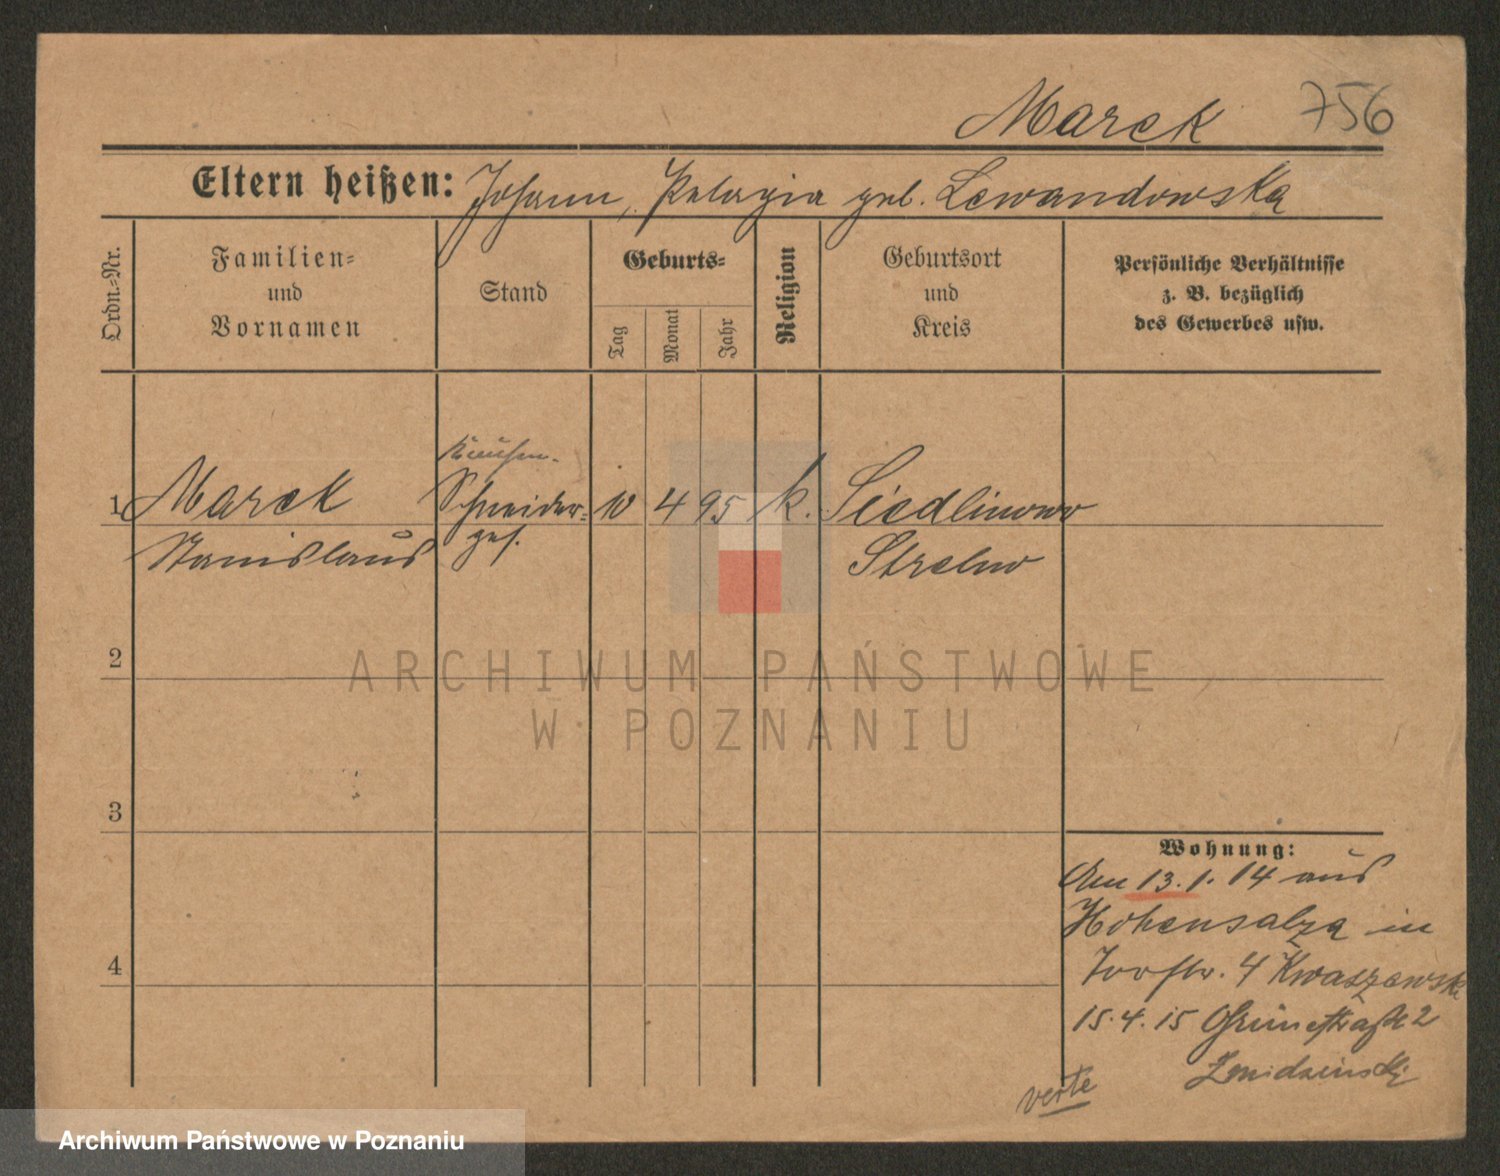 Marek 756
Eltern heißen: Johann, Pelagia geb. Lewandowska
Ordn.-Nr.
Familien-
und
Vornamen
Stand
Geburts-
Tag
Monat
Jahr
Religion
Geburtsort
und
Kreis
Persönliche Verhältnisse
z. B. bezüglich
des Gewerbes usw.
1 Marek Schneider- 10 4 95 k. Siedlimowo
Stanislaus ges. Strelno
2
ARCHIWUM PAŃSTWOWE
W POZNANIU
3
4
Wohnung:
Am 13.1.14 aus
Hohensalza in
4 Kwaszewski
15.4.15 Grünestraße 2
verte
Archiwum Państwowe w Poznaniu